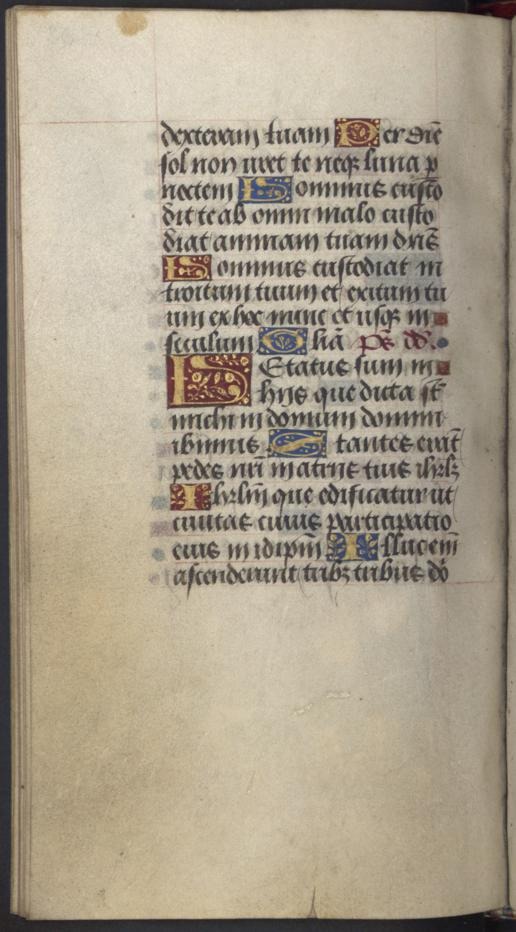 dexteram tuam Per diē
sol non uret te neqꝫ luna p
noctem Dominus custo
dit te ab omni malo custo
diat animam tuam dn̄s
Dominus custodiat in
troitum tuum et exitum tu
um ex hoc nunc et usqꝫ in
seculum Gl̄ia pš dd̄.
Letatus sum in
hijs que dicta st̄
michi in domum domini
ibimus Stantes erāt
pedes nr̄i in atrijs tuis ihrl̄z
Ihrl̄m que edificatur ut
ciuitas cuius participatio
eius in idip̄m Illuc em̄
ascenderunt tribꝫ tribus dō